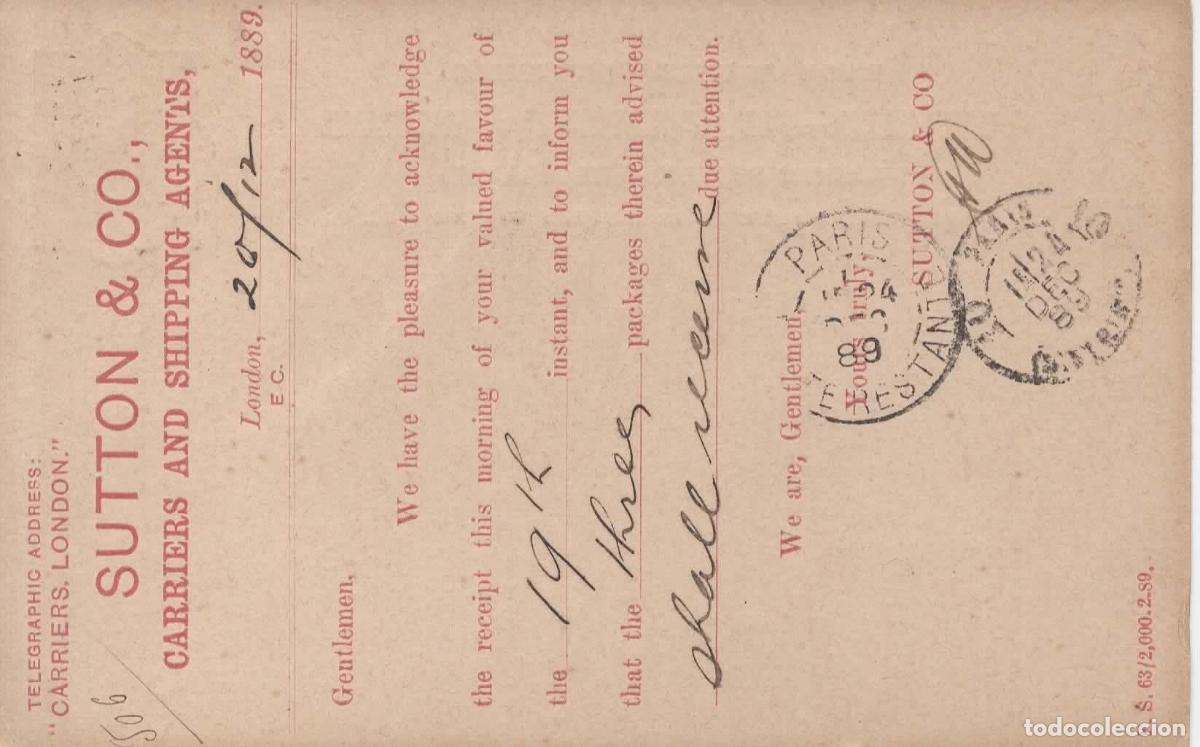 TELEGRAPHIC ADDRESS:
"CARRIERS, LONDON."
SUTTON & CO.,
CARRIERS AND SHIPPING AGENTS,
London, 20/12 1889.
E C.
Gentlemen,
We have the pleasure to acknowledge
the receipt this morning of your valued favour of
the 19th instant, and to inform you
that the three packages therein advised
shall receive due attention.
We are, Gentlemen,
Yours truly,
SUTTON & CO
PARIS
89
RESTANTE
PARIS
24
DEC
89
DISTRIBUTION
S. 63/2,000.2-89.
todocoleccion